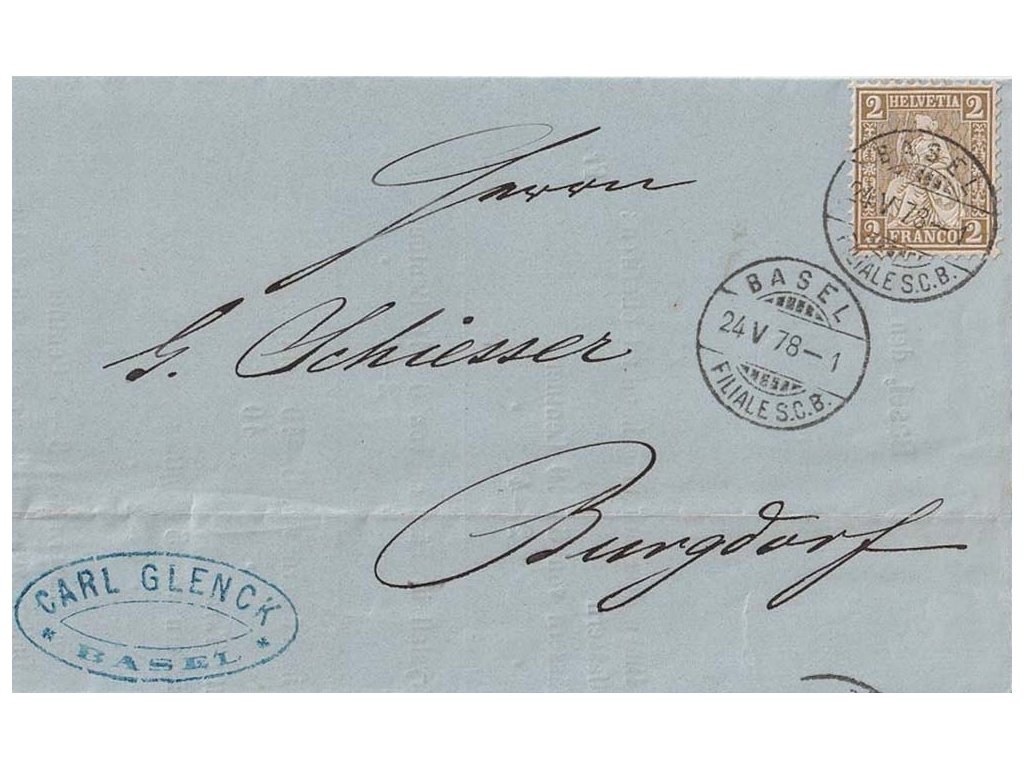 2 HELVETIA 2
2 FRANCO 2
BASEL
24 V 78-1
FILIALE S.C.B.
Herrn
G. Schiesser
BASEL
24 V 78-1
FILIALE S.C.B.
Burgdorf
CARL GLENCK
* BASEL *